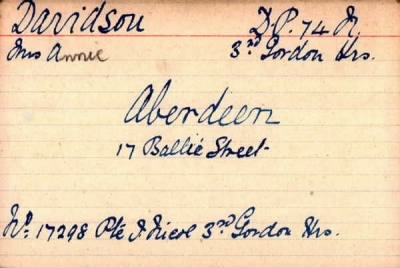 Davidson D.P. 74 N.
Mrs Annie 3rd Gordon Hrs.
Aberdeen
17 Ballie Street
No. 17298 Pte J Nicol 3rd Gordon Hrs.